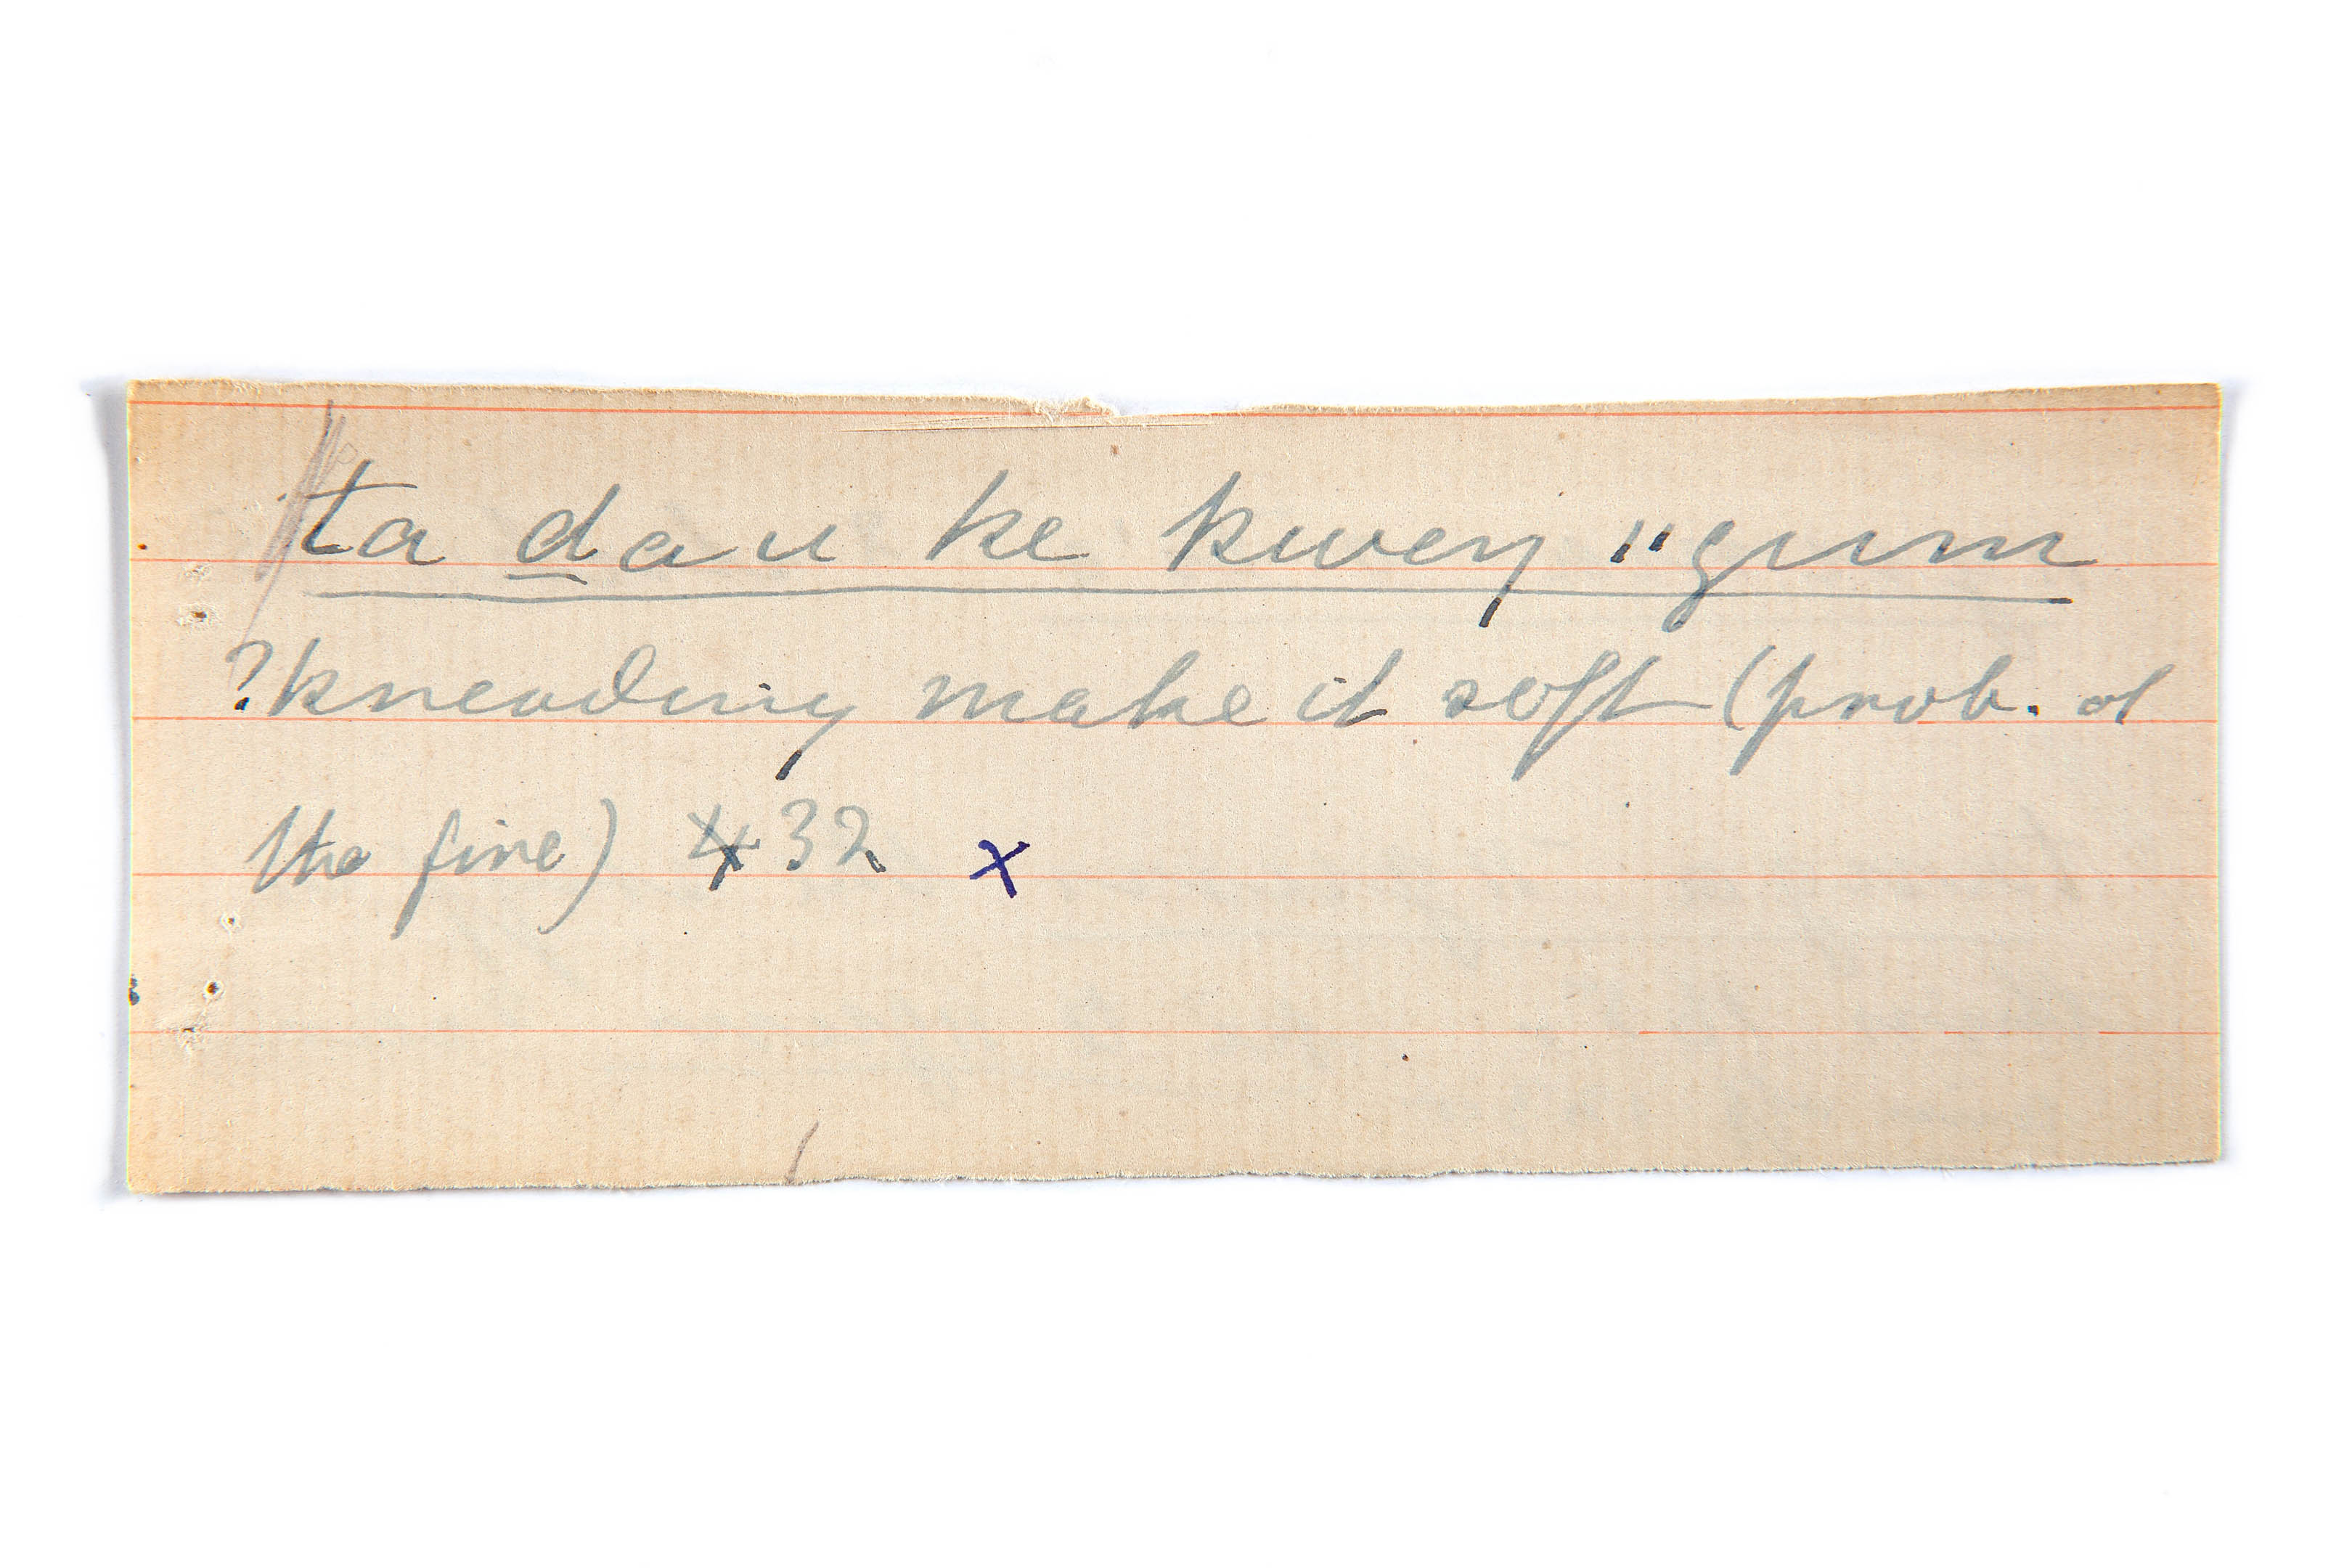 ta d̲au ke kweŋ "gum
?kneading make it soft (prob. of
the fire) 432 x